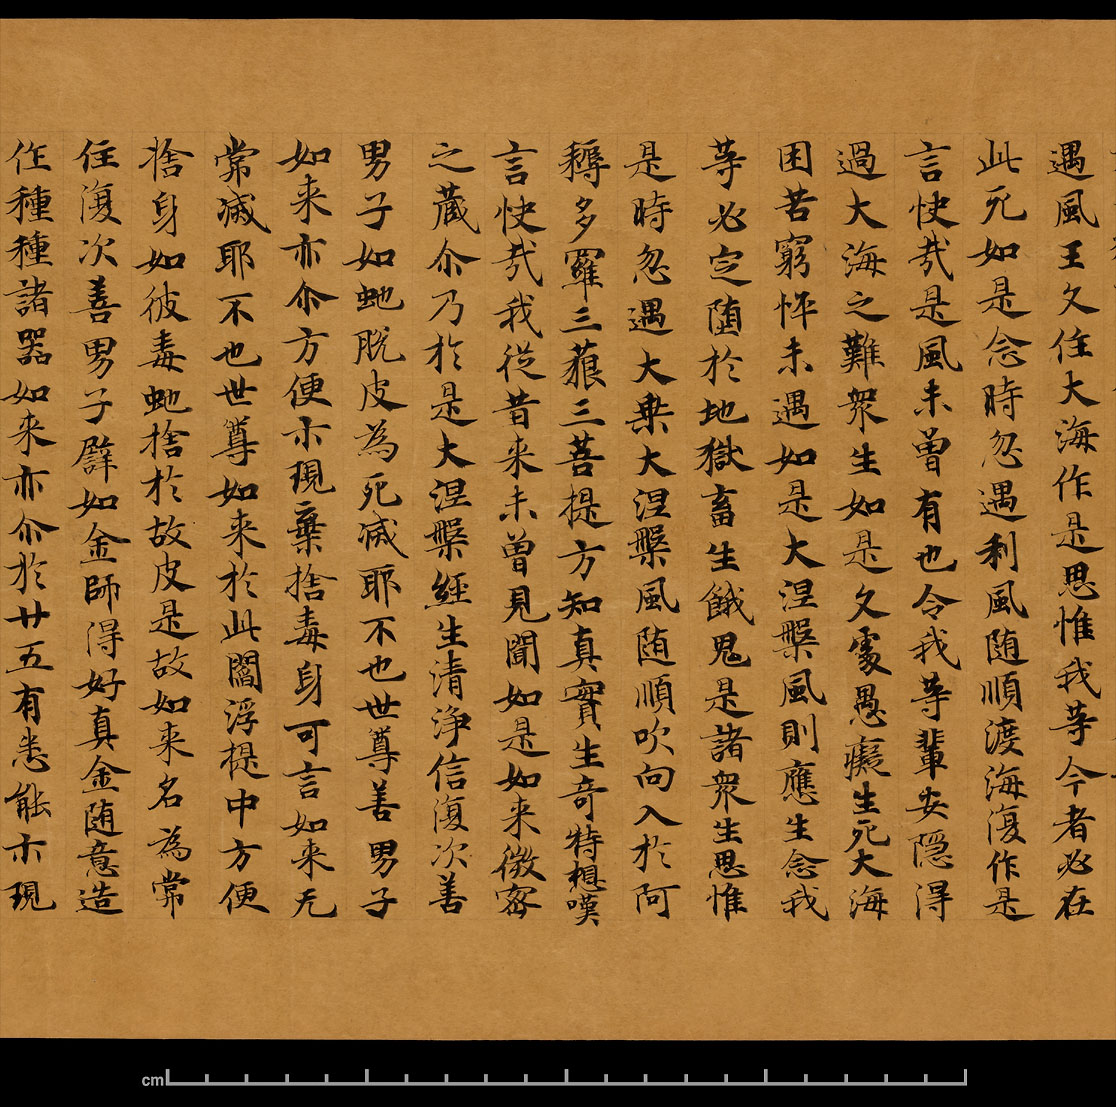 遇風王久住大海作是思惟我等今者必在
此死如是念時忽遇利風随順渡海復作是
言快㢤是風未曾有也令我等輩安隱得
過大海之難衆生如是久處愚癡生死大海
困苦窮悴未遇如是大涅槃風則應生念我
等必定墮於地獄畜生餓鬼是諸衆生思惟
是時忽遇大乗大涅槃風随順吹向入於阿
耨多羅三藐三菩提方知真實生奇特想嘆
言快㢤我從昔来未曾見聞如是如来微密
之蔵尒乃於是大涅槃經生清淨信復次善
男子如虵脱皮為死滅耶不也世尊善男子
如来亦尒方便示現棄捨毒身可言如来无
常滅耶不也世尊如来於此閻浮提中方便
捨身如彼毒虵捨於故皮是故如来名為常
住復次善男子譬如金師得好真金随意造
作種種諸器如来亦尒於廿五有悉能示現
cm